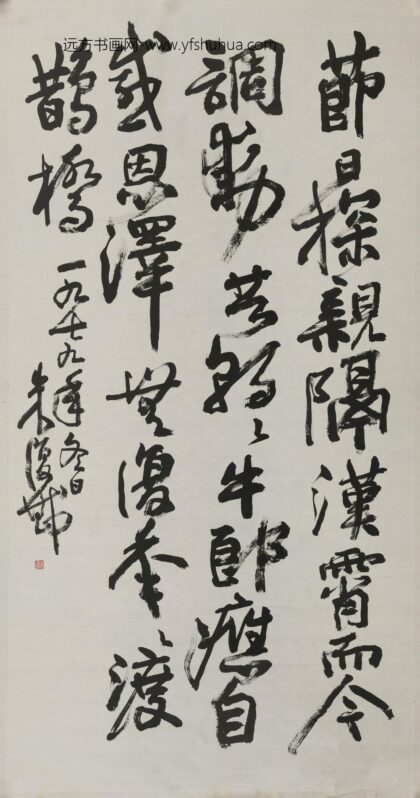 远方书画网-www.yfshuhua.com
節日探親隔漢霄而今
調動朝々牛郎應自
感恩澤無復年々渡
鵲橋 一九七九年冬日
朱復戡